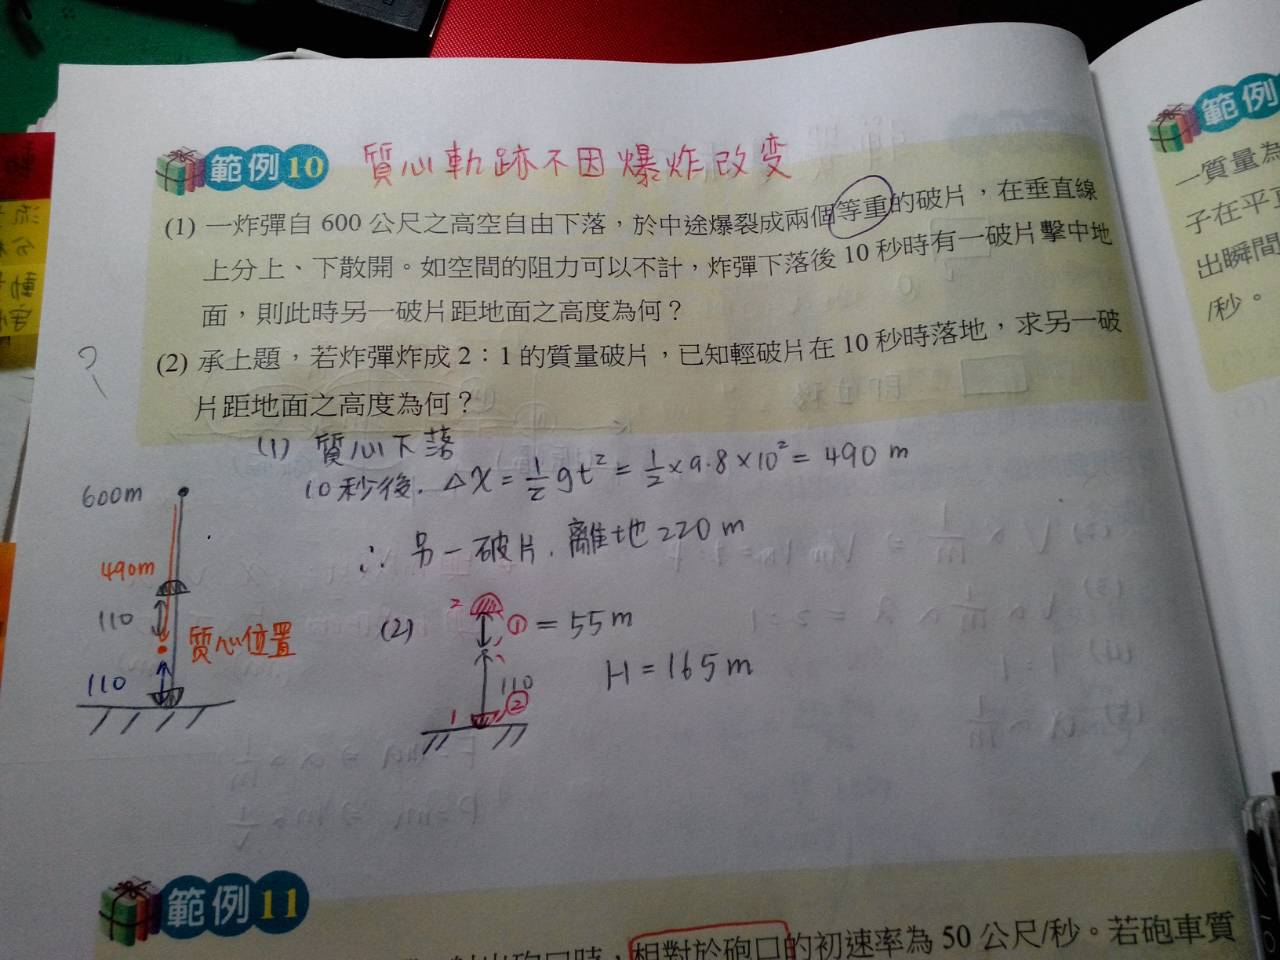 範例10 質心軌跡不因爆炸改变
(1) 一炸彈自 600 公尺之高空自由下落，於中途爆裂成兩個等重的破片，在垂直線
上分上、下散開。如空間的阻力可以不計，炸彈下落後 10 秒時有一破片擊中地
面，則此時另一破片距地面之高度為何？
(2) 承上題，若炸彈炸成 2：1 的質量破片，已知輕破片在 10 秒時落地，求另一破
片距地面之高度為何？
?
(1) 質心下落
10秒後. Δx = 1/2 gt² = 1/2 × 9.8 × 10² = 490 m
∴ 另一破片. 離地 220 m
600m
490m
110
質心位置
110
(2)
2
① = 55 m
110
1 ②
H = 165 m
範例11
相對於砲口的初速率為 50 公尺/秒。若砲車質
範例
一質量為
子在平
出瞬間
/秒。